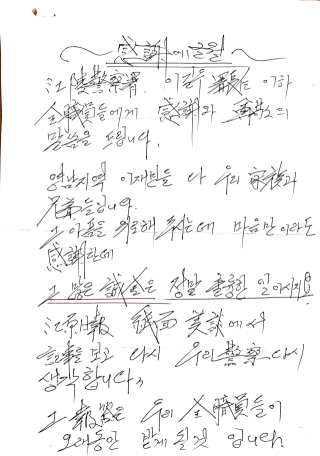 感謝에 글월
江陵警察署. 이길우 署長 이하
全職員들에게 感謝와 의
말씀을 드립니다.
영남지역 이재민들 다 우리 家族과
兄弟들입니다.
그 아픔을 위로해 주는데 마음만이라도
感謝한데
그 많은 誠金은 정말 훌륭한 일 아시지요
江原日報 紙面 美談에서
記事를 보고 다시 우리 警察 다시
생각합니다,
그 우리 全職員들이
오래동안 받게 될 것 입니다.